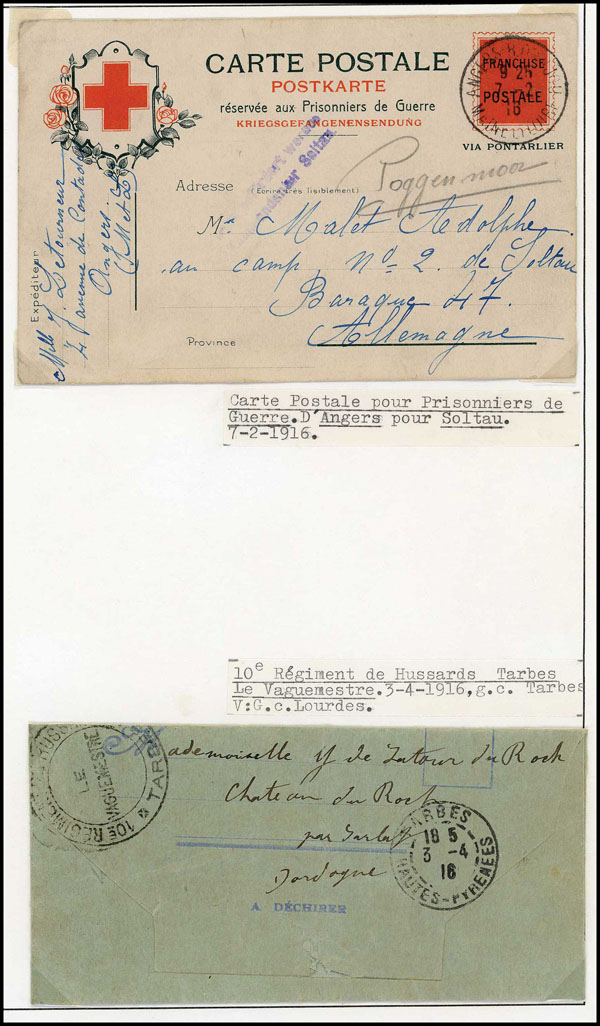 CARTE POSTALE
POSTKARTE
réservée aux Prisonniers de Guerre
KRIEGSGEFANGENENSENDUNG
FRANCHISE
POSTALE
9 25
7 - 2
16
ANGERS
MAINE-ET-LOIRE
VIA PONTARLIER
Soltau
Poggenmoor
Adresse (Ecrire très lisiblement)
Mr Malet Adolphe
au camp No 2. de Soltau
Baraque 47.
Allemagne
Province
Expéditeur
Mlle Y. Letourneur
47 avenue de Contades
Angers
(M et L)
Carte Postale pour Prisonniers de
Guerre.D'Angers pour Soltau.
7-2-1916.
10e Régiment de Hussards Tarbes
Le Vaguemestre.3-4-1916,g.c. Tarbes
V:G.c.Lourdes.
10e RÉGIMENT HUSSARDS
TARBES
LE
VAGUEMESTRE
ademoiselle Y de Latour du Roch
Chateau du Roch
par
Dordogne
A DÉCHIRER
TARBES
18 5
3 -4
16
HAUTES-PYRENEES